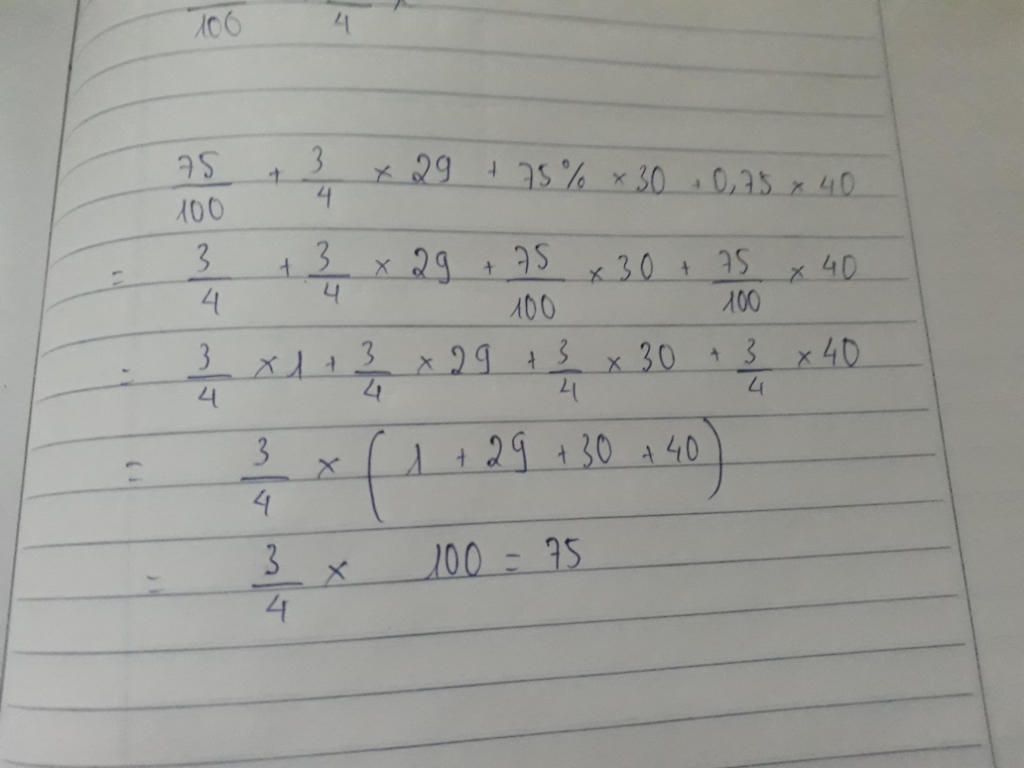 100 4
75/100 + 3/4 × 29 + 75% × 30 + 0,75 × 40
= 3/4 + 3/4 × 29 + 75/100 × 30 + 75/100 × 40
= 3/4 × 1 + 3/4 × 29 + 3/4 × 30 + 3/4 × 40
= 3/4 × ( 1 + 29 + 30 + 40 )
= 3/4 × 100 = 75